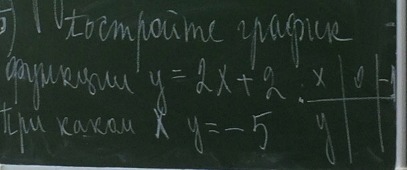 Постройте график
функции y = 2x + 2 x 0 -1
При каком x y = -5 y